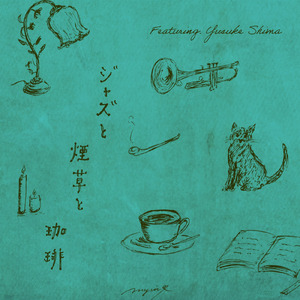 Featuring Yusuke Shima
ジャズと
煙草と
珈琲